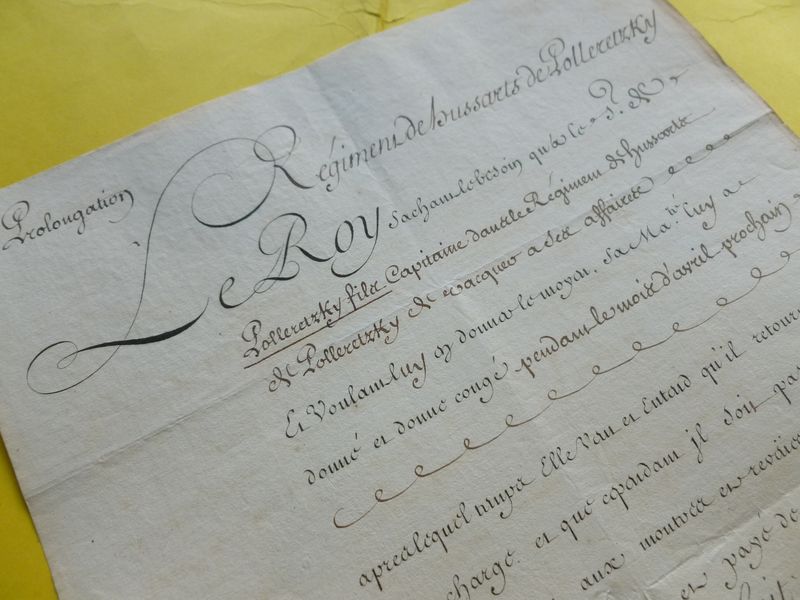 Régiment de hussarts de Polleretzky
Prolongation
Le Roy sachant le besoin qu'a le S.r de
Polleretzky fils Capitaine dans le Régiment de hussarts
de Polleretzky de vacquer a ses affaires
Et Voulant luy en donner le moyen, Sa Ma.té luy a
donné et donne congé pendant le mois d'avril prochain
apres lequel temps Elle Veut et Entend qu'il retourne
charge et que cependant jl soit pas
aux montres et reveües
et payé de